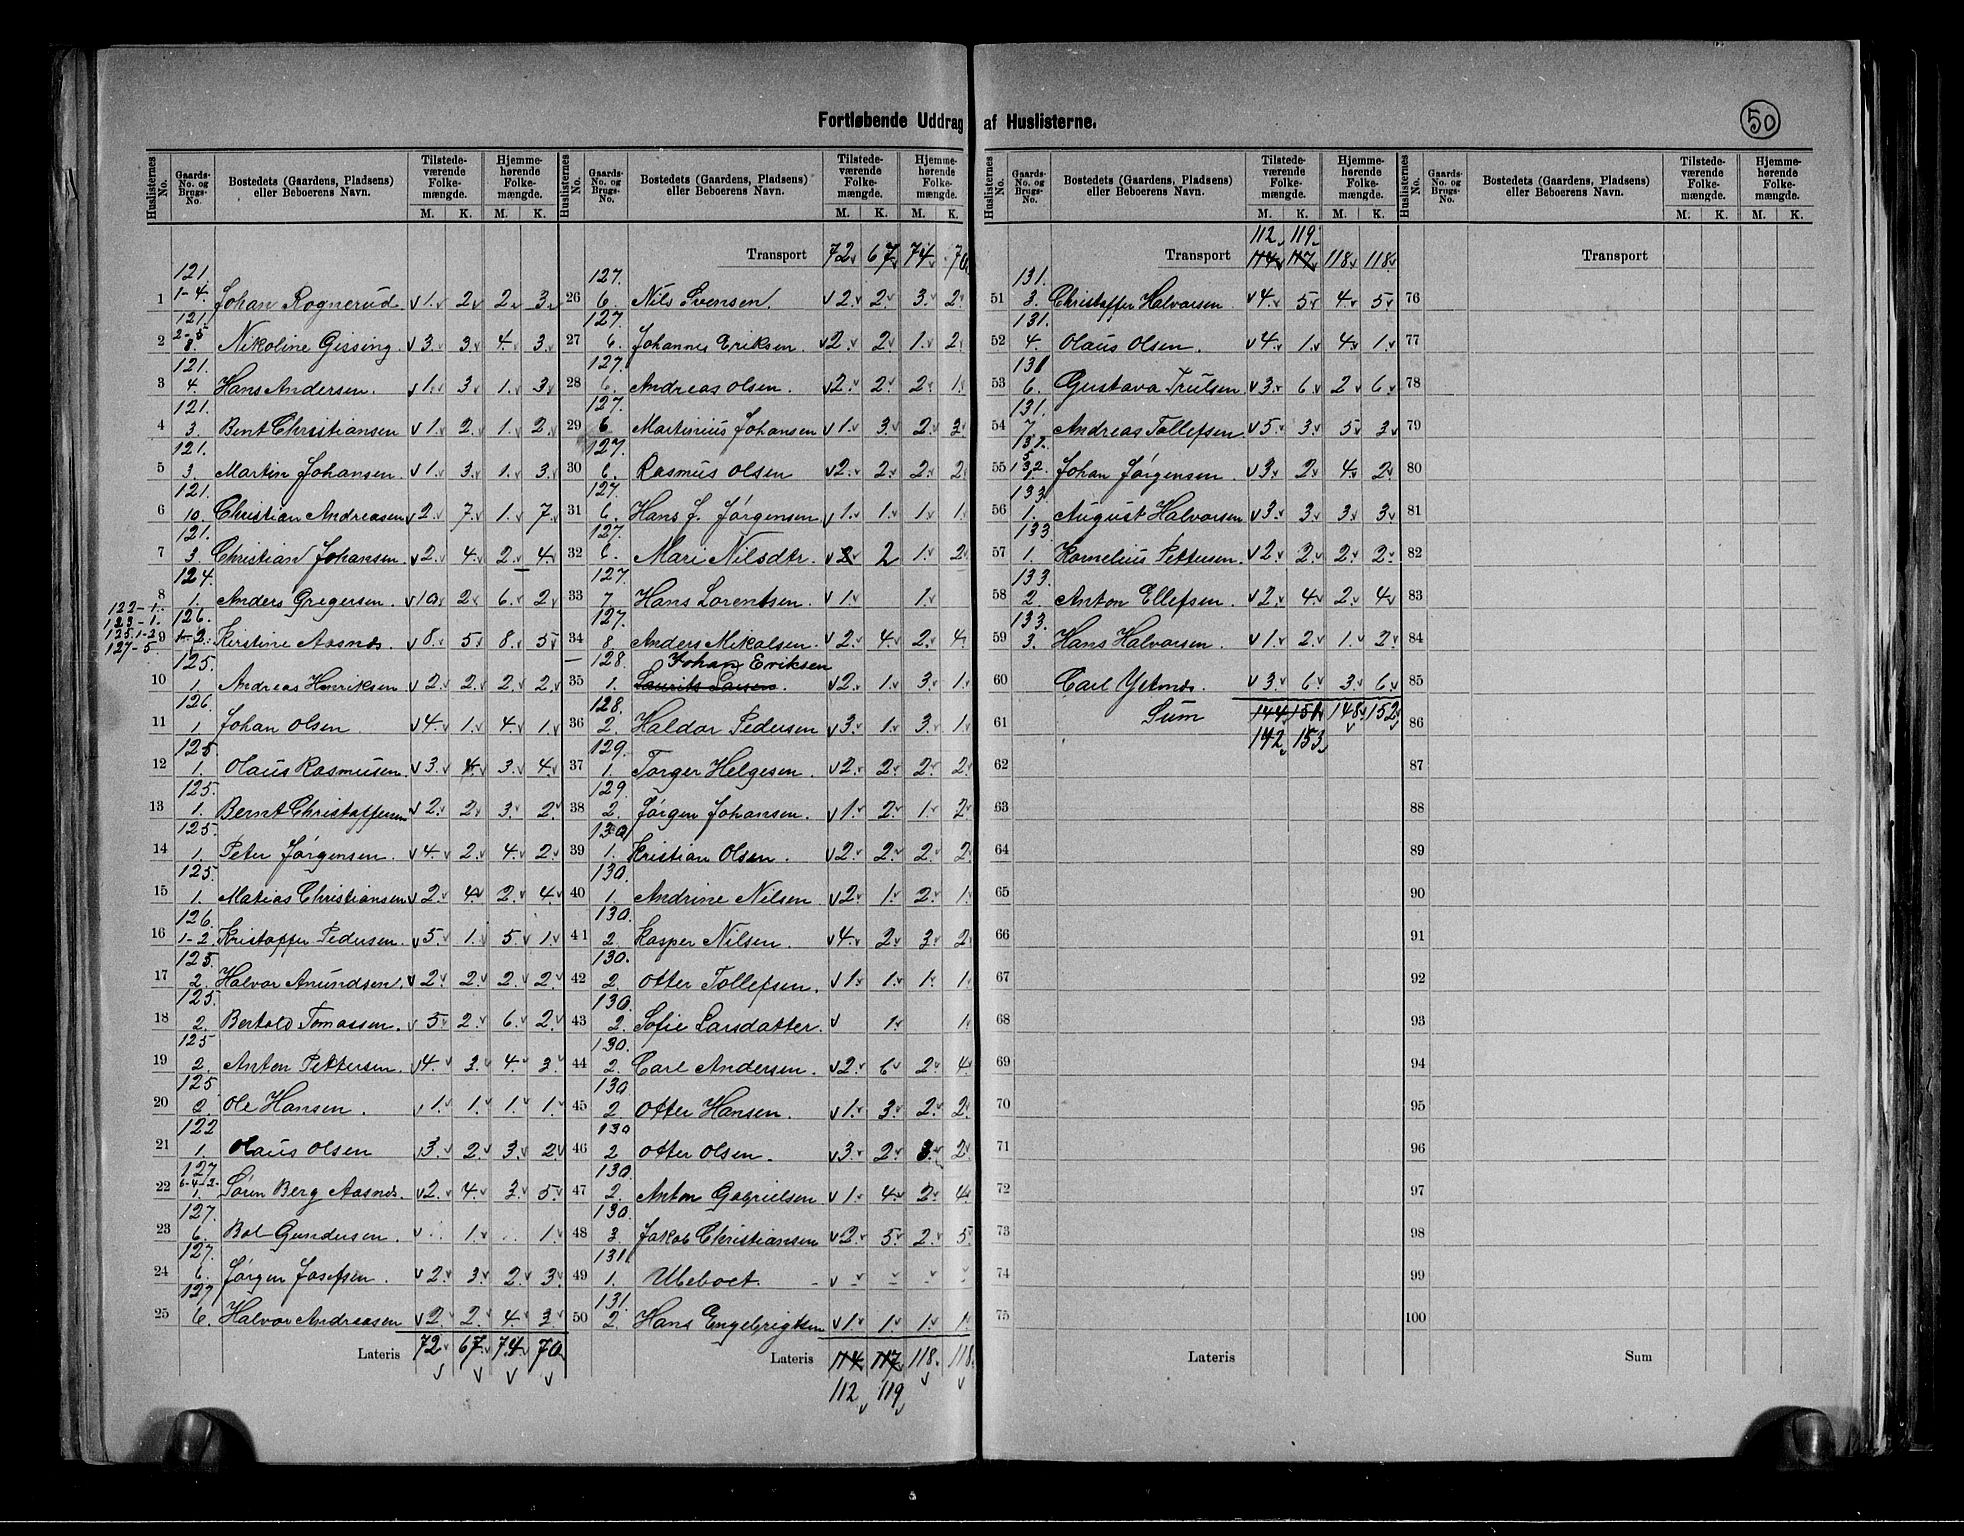 Fortløbende Uddrag af Huslisterne.
50
Huslisternes No. Gaards-No. og Brugs-No. Bostedets (Gaardens, Pladsens) eller Beboerens Navn. Tilstedeværende Folkemængde. M. K. Hjemmehørende Folkemængde. M. K.
1 121. 1-4. Johan Rognerud 1. 2. 2. 3.
2 121. Nikoline Gissing. 3. 3. 4. 3.
3 121. 4 Hans Andersen. 1. 3. 1. 3.
4 121. 3. Bent Christiansen 1. 2. 1. 2.
5 121. 3. Martin Johansen. 1. 3. 1. 3.
6 121. 10. Christian Andreasen 2. 7. 1. 7.
7 121. 3. Christian Johansen. 2. 4. 2. 4.
8 124. 1. Anders Gregersen. 10. 2. 6. 2.
122-1.
123-1.
125.1-2
127-5.
9 126. 1-2. Kerstine Aasnes. 8. 5. 8. 5.
10 125. 1. Andreas Henriksen 2. 2. 2. 2.
11 126. 1. Johan Olsen 4. 1. 4. 1.
12 125 1. Olaus Rasmusen 3. 4. 3. 4.
13 125. 1. Bernt Christoffersen 2. 2. 3. 2.
14 125. 1. Peter Jørgensen. 4. 2. 4. 2.
15 125. 1. Matias Christiansen 2. 4. 2. 4.
16 126. 1-2. Kristoffer Pedersen. 5. 1. 5. 1.
17 125. 2. Halvor Amundsen. 2. 2. 2. 2.
18 125. 2. Bertold Tomassen. 5. 2. 6. 2.
19 125 2. Anton Pettersen. 4. 3. 4. 3.
20 125 2. Ole Hansen. 1. 1. 1. 1.
21 122 1. Olaus Olsen 3. 2. 3. 2.
22 127 1. Søren Berg Aasnes. 2. 4. 3. 5.
23 127. 6. Bol Gundersen. 1. 1.
24 127. 6. Jørgen Josefsen. 2. 3. 2. 3.
25 127 6. Halvor Andreasen 2. 2. 4. 3.
Lateris 72. 67. 74. 70.
Huslisternes No. Gaards-No. og Brugs-No. Bostedets (Gaardens, Pladsens) eller Beboerens Navn. Tilstedeværende Folkemængde. M. K. Hjemmehørende Folkemængde. M. K.
Transport 72 67 74 70
26 127. 6. Nils Svensen. 2. 2. 3. 2.
27 127. 6. Johannes Eriksen. 2. 2. 1. 2
28 127. 6. Andreas Olsen. 2. 2. 2. 1.
29 127. 6. Martinius Johansen 1. 3. 2. 3.
30 127. 6. Rasmus Olsen 2. 2. 2. 2.
31 127. 6. Hans J. Jørgensen 1. 1. 1. 1.
32 127. 6. Mari Nilsdtr. 2 2 1. 2
33 127. 7. Hans Lorentsen. 1. 1.
34 127. 8. Anders Mikalsen. 2. 4. 2. 4.
Johan Eriksen
35 128. 1. Laurits Larsen. 2. 1. 3. 1.
36 128. 2. Haldor Pedersen 3. 1. 3. 1.
37 129. 1. Torger Helgesen. 2. 2. 2. 2.
38 129. 2. Jørgen Johansen. 1. 2. 1. 2.
39 130 1. Kristian Olsen. 2. 2. 2. 2.
40 130. 1. Andrine Nilsen 2. 1. 2. 1.
41 130. 2. Kasper Nilsen. 4. 2. 3. 2.
42 130. 2. Otter Tollefsen. 1. 1. 1. 1.
43 130. 2. Sofie Larsdatter. 1. 1.
44 130. 2. Carl Andersen. 2. 6. 2. 4.
45 130 2. Otter Hansen. 1. 3. 2. 2.
46 130 2 Otter Olsen. 3. 2. 3. 2.
47 130 2. Anton Gabrielsen 1. 4. 2. 4.
48 130. 3. Jakob Christiansen 2. 5. 2. 5.
49 131. 1. Ubeboet. - - - -
50 131. 2. Hans Engebrigtsen 1. 1. 1. 1.
Lateris 114 117 118. 118.
112 119
Huslisternes No. Gaards-No. og Brugs-No. Bostedets (Gaardens, Pladsens) eller Beboerens Navn. Tilstedeværende Folkemængde. M. K. Hjemmehørende Folkemængde. M. K.
112 119
Transport 114 117 118 118
51 131. 3. Christoffer Halvorsen 4. 5. 4. 5.
52 131. 4. Olaus Olsen. 4. 1. 4. 1.
53 131 6. Gustava Trulsen 3. 6. 2. 6.
54 131. 7. Andreas Tollefsen 5. 3. 5. 3
55 132. Johan Jørgensen. 3. 2. 4. 2.
56 133 1. August Halvorsen 3. 3. 3. 3.
57 133. 1. Kornelius Pettersen. 2. 2. 2. 2.
58 133. 2. Anton Ellefsen 2. 4. 2. 4.
59 133. 3. Hans Halvorsen. 1. 2. 1. 2.
60 Carl 3. 6. 3. 6.
61 Sum 144 151 148 152
62 142 153
63
64
65
66
67
68
69
70
71
72
73
74
75
Lateris
Huslisternes No. Gaards-No. og Brugs-No. Bostedets (Gaardens, Pladsens) eller Beboerens Navn. Tilstedeværende Folkemængde. M. K. Hjemmehørende Folkemængde. M. K.
Transport
76
77
78
79
80
81
82
83
84
85
86
87
88
89
90
91
92
93
94
95
96
97
98
99
100
Sum